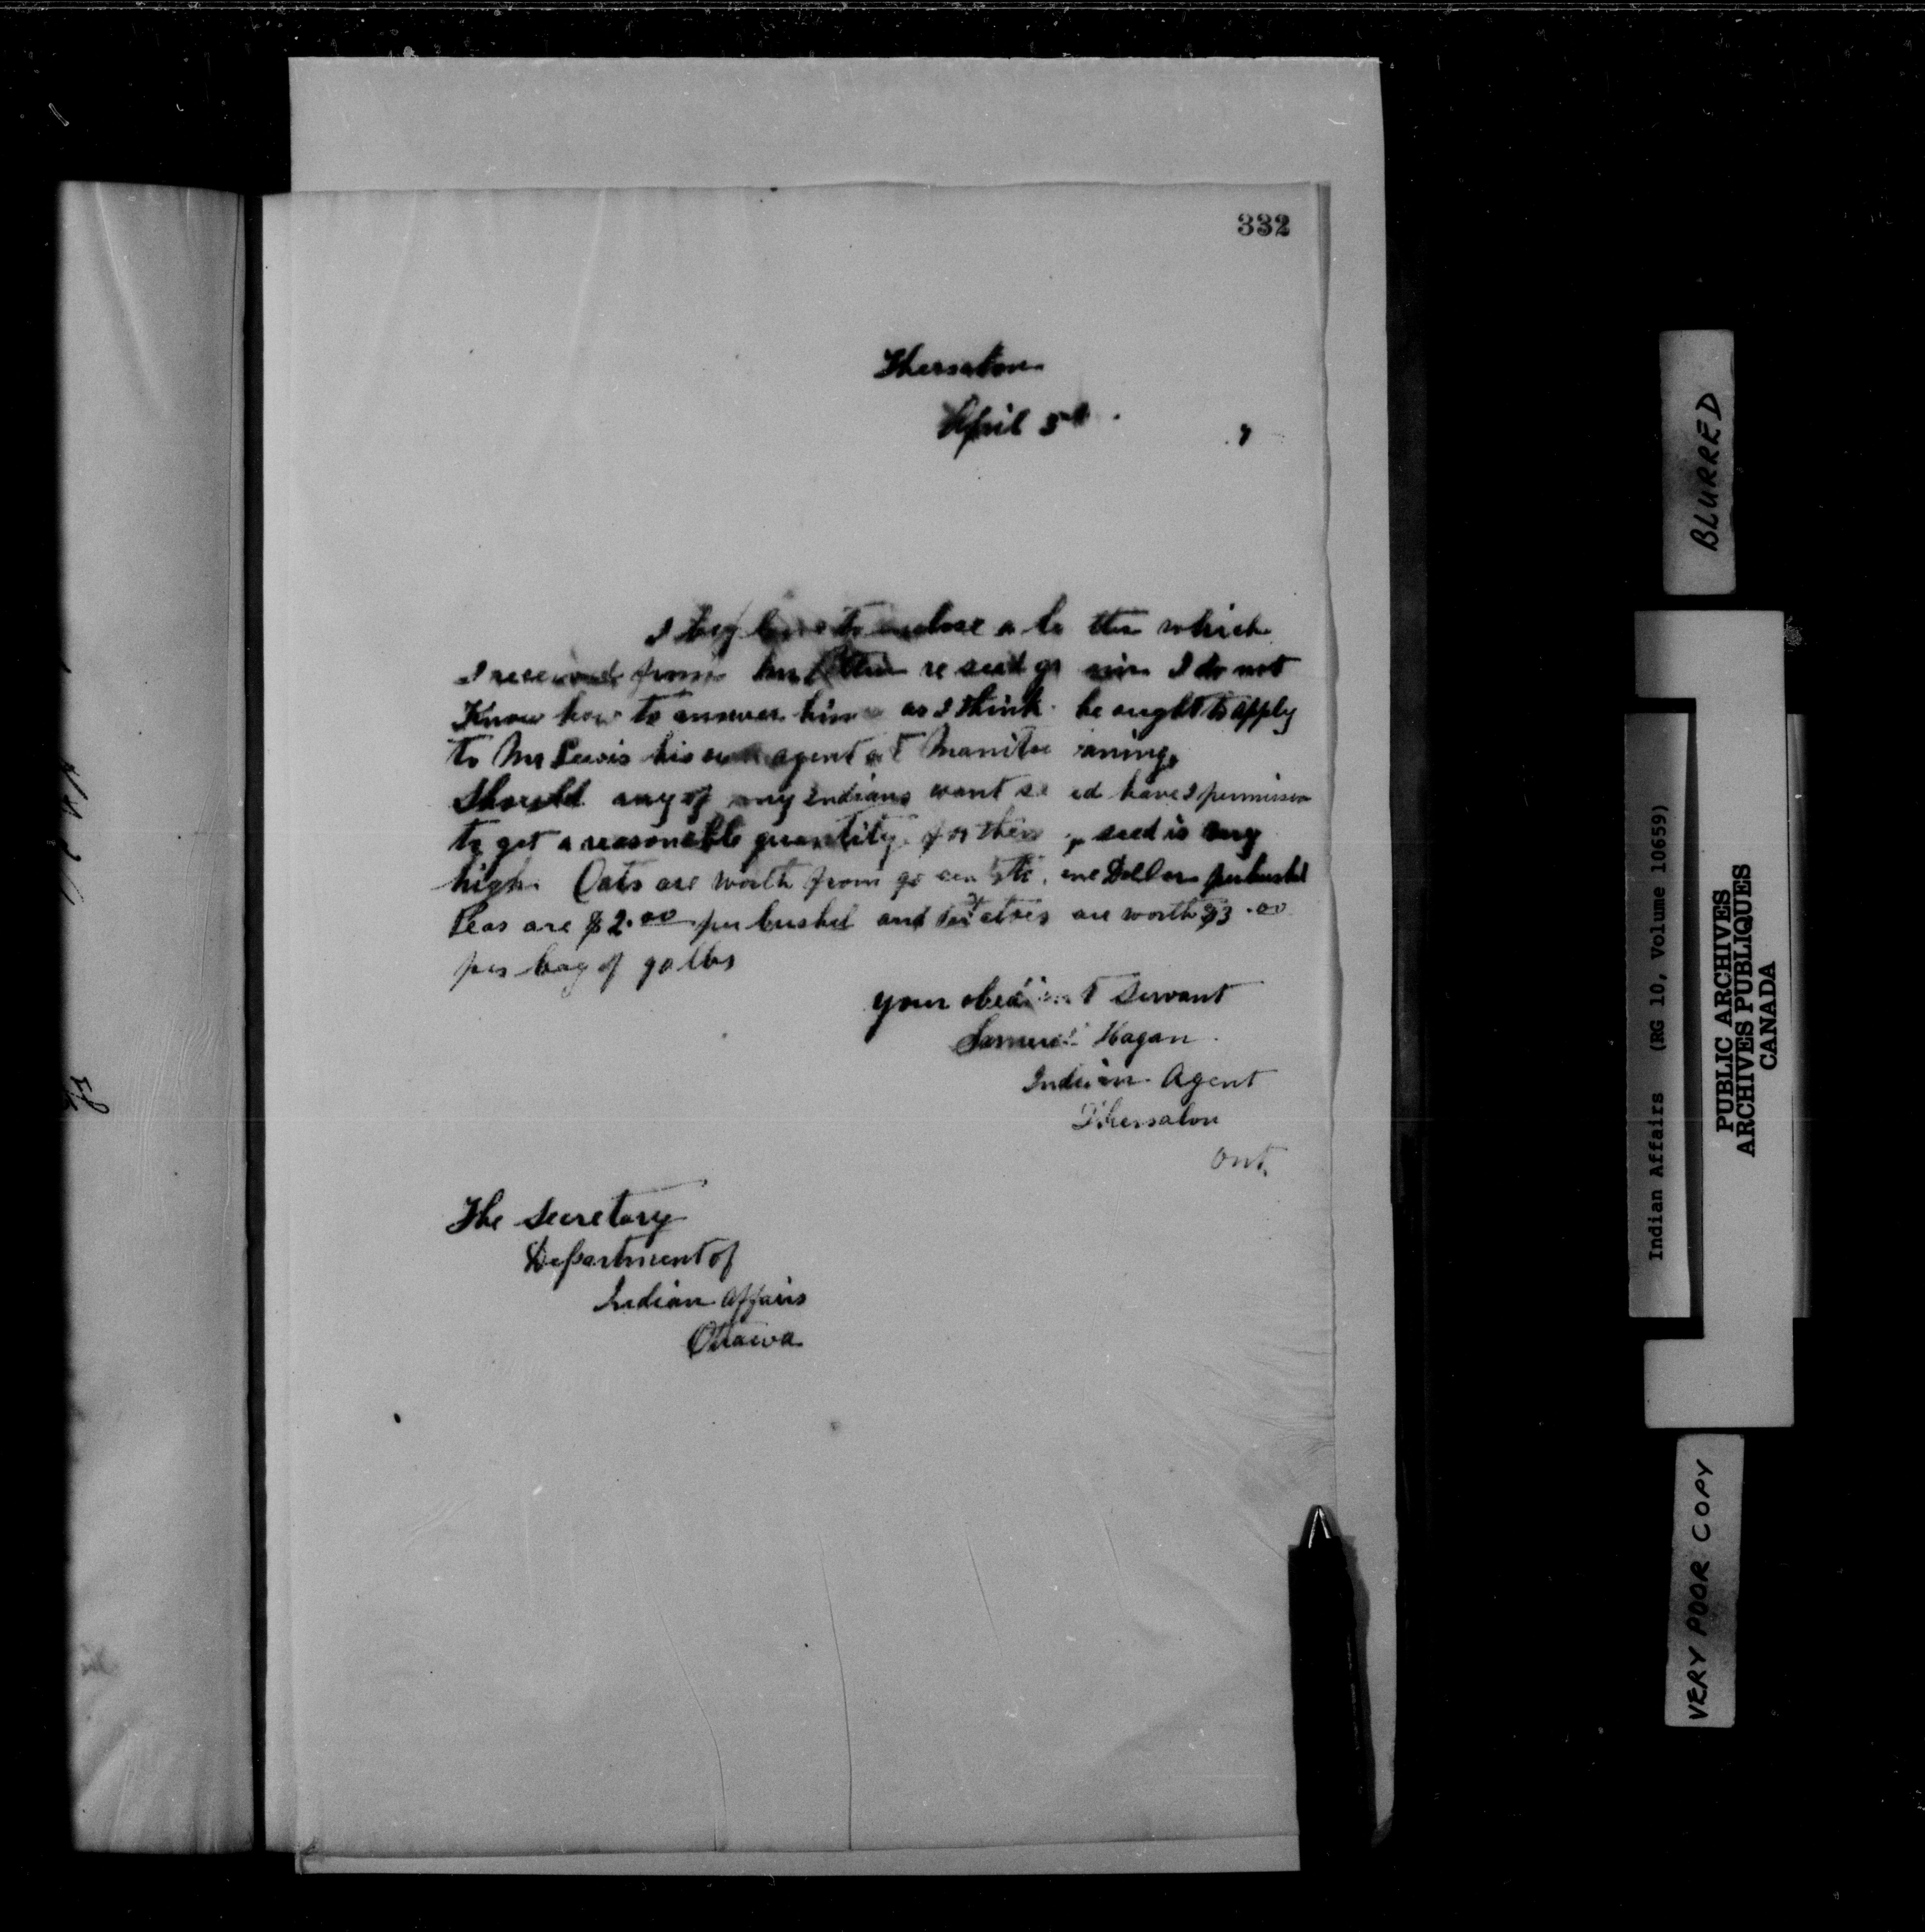 332
Thessalon
April 3rd 7
I beg leave to enclose a letter which
I received from re seed grain I do not
Know how to answer him as I think he ought to apply
to Mr Lewis his own agent at Manitowaning.
Should any of my Indians want seed have I permission
to get a reasonable quantity for them, seed is very
high. Oats are worth from 90 cents to one Dollar per bushel
Peas are $2.00 per bushel and Potatoes are worth $3.00
per bag of 90 lbs
your obedient Servant
Samuel Hagan
Indian Agent
Thessalon
Ont.
The Secretary
Department of
Indian Affairs
Ottawa
BLURRED
Indian Affairs (RG 10, Volume 10659)
PUBLIC ARCHIVES
ARCHIVES PUBLIQUES
CANADA
VERY POOR COPY